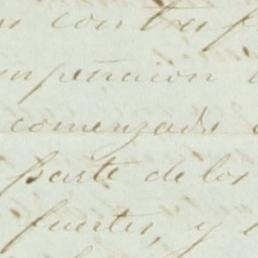 con tres
mpensacion
comenzado
parte de los
fuertes, y